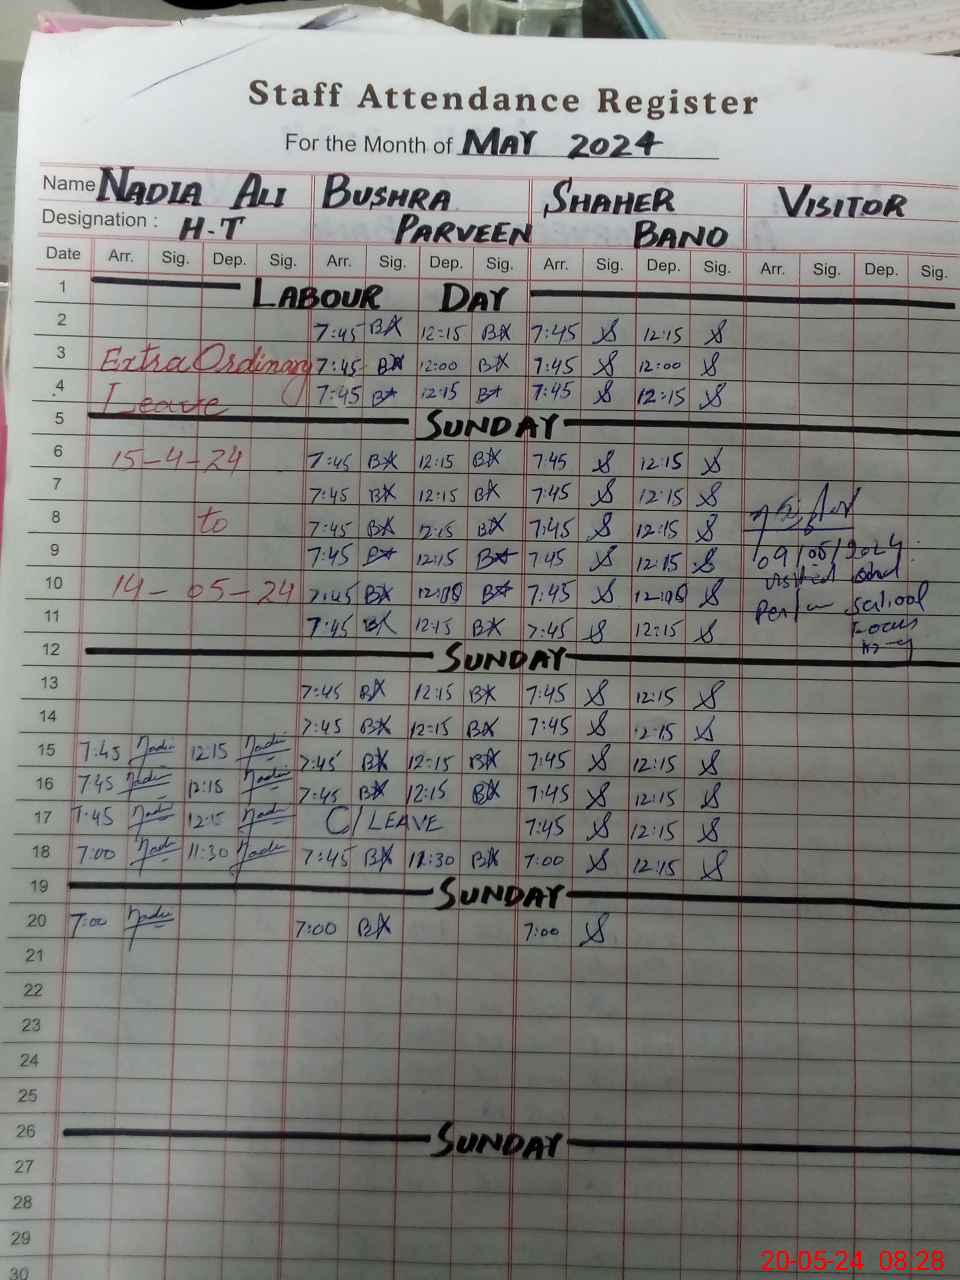 Staff Attendance Register
For the Month of MAY 2024
Name NADIA ALI BUSHRA SHAHER VISITOR
Designation : H-T PARVEEN BANO
Date Arr. Sig. Dep. Sig. Arr. Sig. Dep. Sig. Arr. Sig. Dep. Sig. Arr. Sig. Dep. Sig.
1 LABOUR DAY
2 7:45 12:15 7:45 12:15
3 Extra Ordinary 7:45 12:00 7:45 12:00
4 Leave 7:45 12:15 7:45 12:15
5 SUNDAY
6 15-4-24 7:45 12:15 7:45 12:15
7 7:45 12:15 7:45 12:15
8 to 7:45 12:15 7:45 12:15
9 7:45 12:15 7:45 12:15 09/05/2024
10 14-05-24 7:45 7:45 visited
11 7:45 12:15 7:45 12:15 School
Focus
12 SUNDAY
13 7:45 12:15 7:45 12:15
14 7:45 12:15 7:45 12:15
15 7:45 Nadia 12:15 Nadia 7:45 12:15 7:45 12:15
16 7:45 Nadia 12:15 Nadia 7:45 12:15 7:45 12:15
17 7:45 Nadia 12:15 Nadia C/LEAVE 7:45 12:15
18 7:00 Nadia 11:30 Nadia 7:45 11:30 7:00 12:15
19 SUNDAY
20 7:00 Nadia 7:00 7:00
21
22
23
24
25
26 SUNDAY
27
28
29
30
20-05-24 08:28